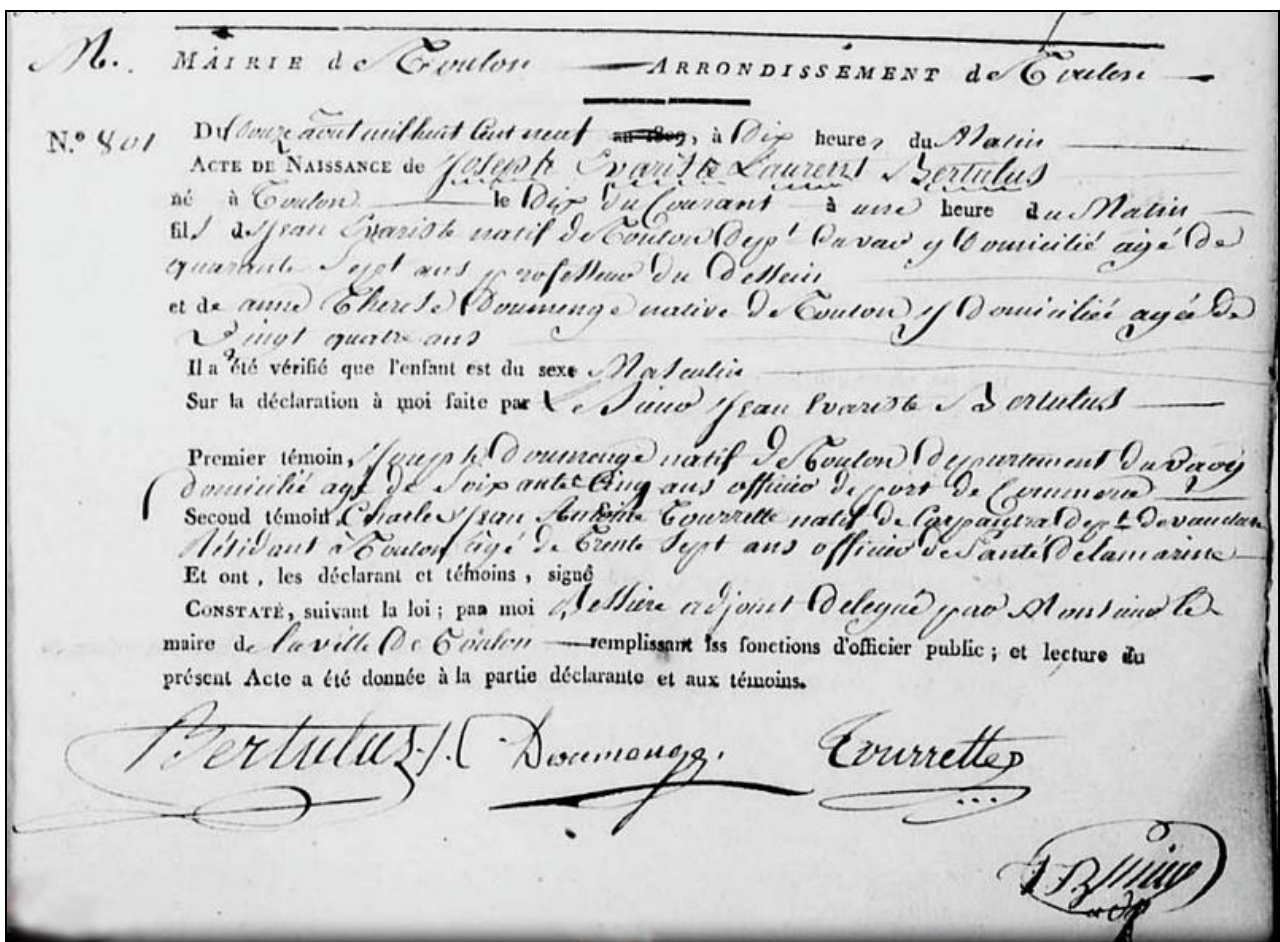 M. MAIRIE de Toulon ARRONDISSEMENT de Toulon
N.º 801 Du Douze août mil huit Cent neuf an 1809, à Dix heures du Matin
ACTE DE NAISSANCE de Joseph Evariste Laurent Bertulus
né à Toulon le Dix du Courant à une heure du Matin
fils de Jean Evariste natif de Toulon Dep.t Du var y Domicilié agé de
quarante Sept ans professeur du Dessein
et de anne Therese Doumenge native de Toulon y Domiciliée agée de
Vingt quatre ans
Il a été vérifié que l'enfant est du sexe Masculin
Sur la déclaration à moi faite par Le Sieur Jean Evariste Bertulus
Premier témoin, Joseph Doumenge natif de Toulon Departement du var y
Domicilié agé de Soixante Cinq ans officier de port de Commerce
Second témoin, Charles Jean Antoine Tourrette natif de Carpantra Dep.t de vaucluse
Résidant à Toulon agé de Trente Sept ans officier de Santé de la marine
Et ont, les déclarant et témoins, signé
CONSTATÉ, suivant la loi; par moi adjoint Delegué par Monsieur le
maire de la ville De Toulon remplissant lss fonctions d'officier public; et lecture du
présent Acte a été donnée à la partie déclarante et aux témoins.
Bertulus J. Doumenge. Tourrette